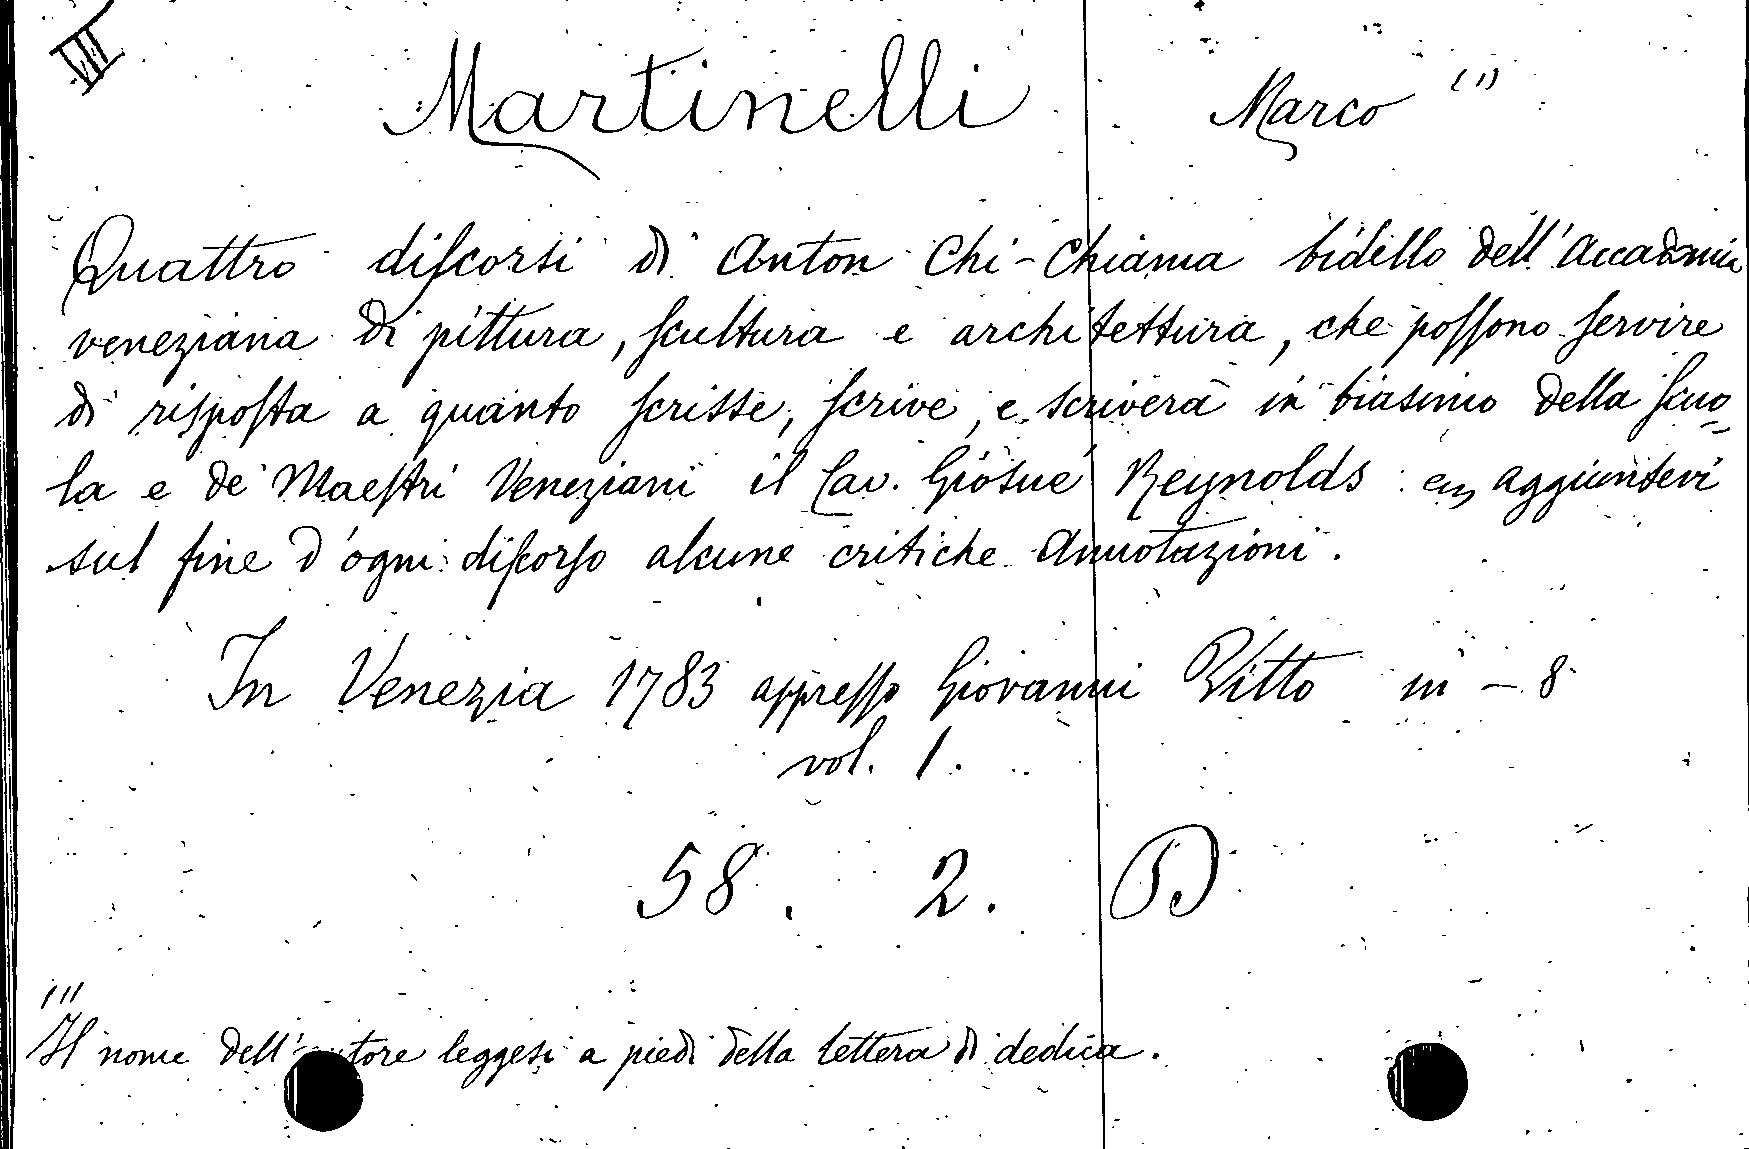 VII
Martinelli Marco (1)
Quattro diſcorsi di Anton Chi-Chiama bidello dell'Accademia
veneziana di pittura, ſcultura e architettura, che poſſono ſervire
di risposta a quanto ſcrisse, ſcrive, e scriverà in biasimo della ſcuo=
la e de' Maeſtri Veneziani il Cav. Giosuè Reynolds aggiuntevi
sul fine d'ogni diſcorſo alcune critiche Annotazioni.
In Venezia 1783 appreſſo Giovanni Vitto in - 8
vol. 1.
58. 2.
(1)
Il nome dell'autore leggesi a piedi della lettera di dedica.